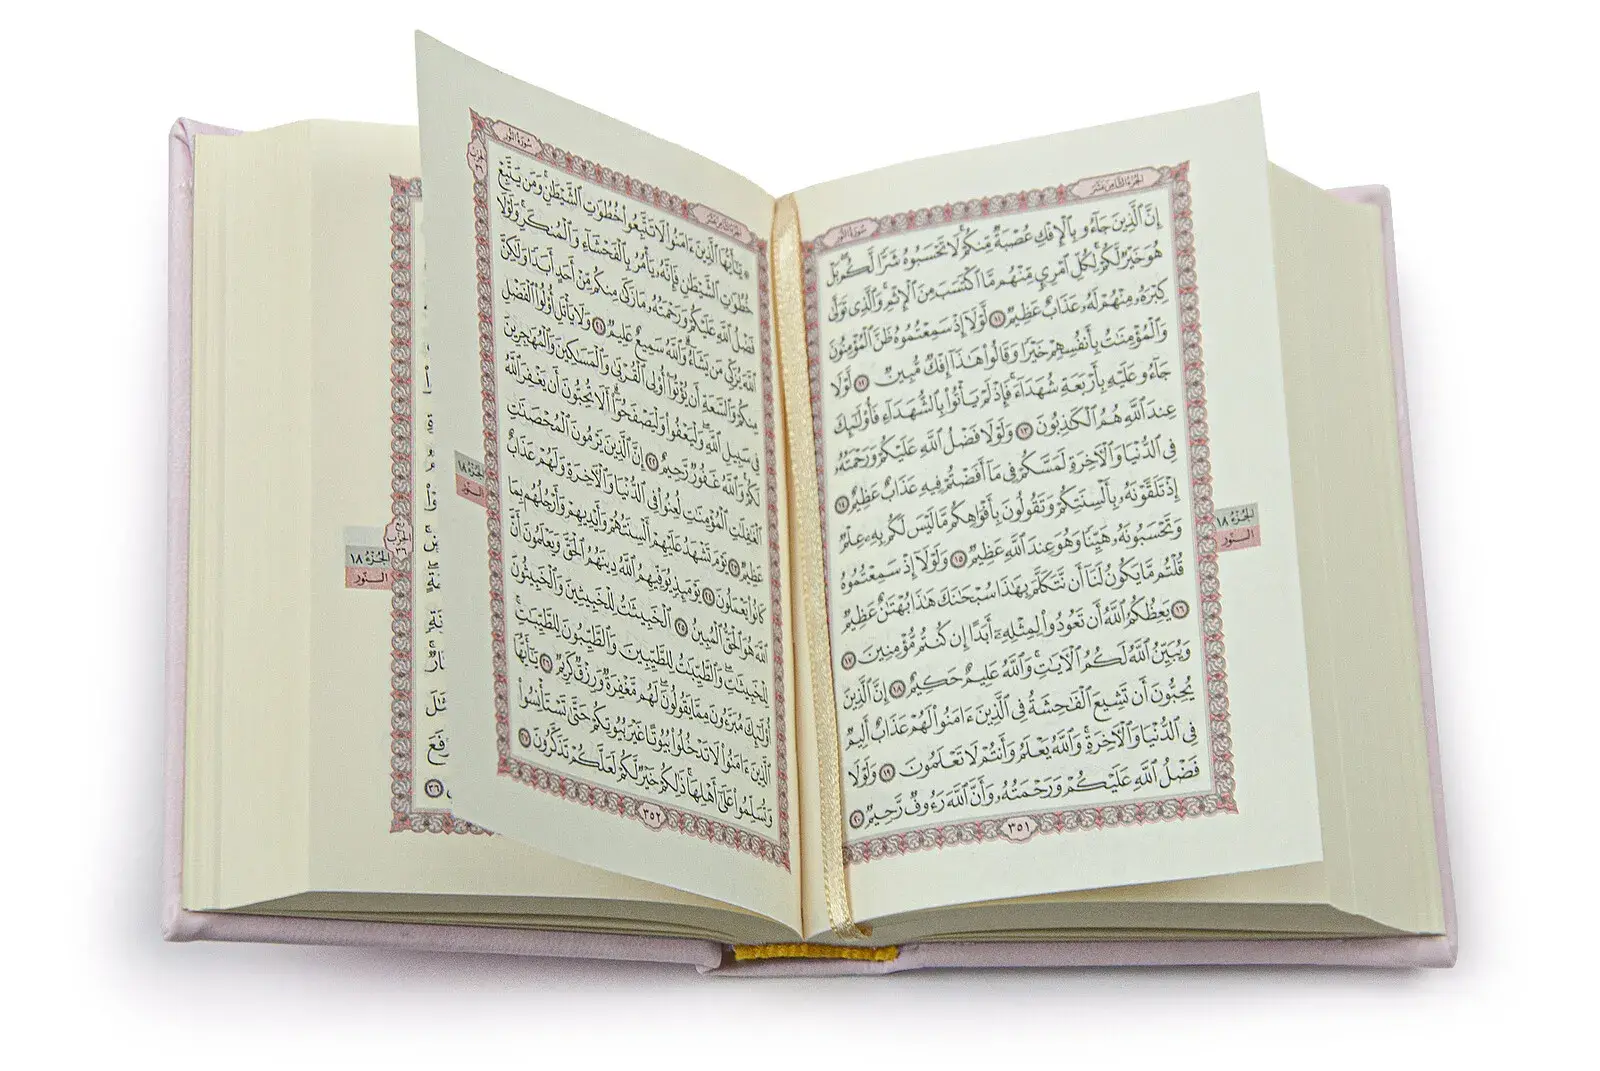 الجزء الثامن عشر
سورة النور
إِنَّ ٱلَّذِينَ جَآءُو بِٱلْإِفْكِ عُصْبَةٌ مِّنكُمْ لَا تَحْسَبُوهُ شَرًّا لَّكُم بَلْ
هُوَ خَيْرٌ لَّكُمْ لِكُلِّ ٱمْرِئٍ مِّنْهُم مَّا ٱكْتَسَبَ مِنَ ٱلْإِثْمِ وَٱلَّذِى تَوَلَّىٰ
كِبْرَهُۥ مِنْهُمْ لَهُۥ عَذَابٌ عَظِيمٌ ١١ لَّوْلَآ إِذْ سَمِعْتُمُوهُ ظَنَّ ٱلْمُؤْمِنُونَ
وَٱلْمُؤْمِنَٰتُ بِأَنفُسِهِمْ خَيْرًا وَقَالُوا۟ هَٰذَآ إِفْكٌ مُّبِينٌ ١٢ لَّوْلَا
جَآءُو عَلَيْهِ بِأَرْبَعَةِ شُهَدَآءَ فَإِذْ لَمْ يَأْتُوا۟ بِٱلشُّهَدَآءِ فَأُو۟لَٰٓئِكَ
عِندَ ٱللَّهِ هُمُ ٱلْكَٰذِبُونَ ١٣ وَلَوْلَا فَضْلُ ٱللَّهِ عَلَيْكُمْ وَرَحْمَتُهُۥ
فِى ٱلدُّنْيَا وَٱلْءَاخِرَةِ لَمَسَّكُمْ فِى مَآ أَفَضْتُمْ فِيهِ عَذَابٌ عَظِيمٌ ١٤
إِذْ تَلَقَّوْنَهُۥ بِأَلْسِنَتِكُمْ وَتَقُولُونَ بِأَفْوَاهِكُم مَّا لَيْسَ لَكُم بِهِۦ عِلْمٌ
وَتَحْسَبُونَهُۥ هَيِّنًا وَهُوَ عِندَ ٱللَّهِ عَظِيمٌ ١٥ وَلَوْلَآ إِذْ سَمِعْتُمُوهُ
قُلْتُم مَّا يَكُونُ لَنَآ أَن نَّتَكَلَّمَ بِهَٰذَا سُبْحَٰنَكَ هَٰذَا بُهْتَٰنٌ عَظِيمٌ
١٦ يَعِظُكُمُ ٱللَّهُ أَن تَعُودُوا۟ لِمِثْلِهِۦٓ أَبَدًا إِن كُنتُم مُّؤْمِنِينَ ١٧
وَيُبَيِّنُ ٱللَّهُ لَكُمُ ٱلْءَايَٰتِ وَٱللَّهُ عَلِيمٌ حَكِيمٌ ١٨ إِنَّ ٱلَّذِينَ
يُحِبُّونَ أَن تَشِيعَ ٱلْفَٰحِشَةُ فِى ٱلَّذِينَ ءَامَنُوا۟ لَهُمْ عَذَابٌ أَلِيمٌ
فِى ٱلدُّنْيَا وَٱلْءَاخِرَةِ وَٱللَّهُ يَعْلَمُ وَأَنتُمْ لَا تَعْلَمُونَ ١٩ وَلَوْلَا
فَضْلُ ٱللَّهِ عَلَيْكُمْ وَرَحْمَتُهُۥ وَأَنَّ ٱللَّهَ رَءُوفٌ رَّحِيمٌ ٢٠
الجزء ١٨
النور
٣٥١
الجزء الثامن عشر
سورة النور
الحزب ٣٦
۞ يَٰٓأَيُّهَا ٱلَّذِينَ ءَامَنُوا۟ لَا تَتَّبِعُوا۟ خُطُوَٰتِ ٱلشَّيْطَٰنِ وَمَن يَتَّبِعْ
خُطُوَٰتِ ٱلشَّيْطَٰنِ فَإِنَّهُۥ يَأْمُرُ بِٱلْفَحْشَآءِ وَٱلْمُنكَرِ وَلَوْلَا
فَضْلُ ٱللَّهِ عَلَيْكُمْ وَرَحْمَتُهُۥ مَا زَكَىٰ مِنكُم مِّنْ أَحَدٍ أَبَدًا وَلَٰكِنَّ
ٱللَّهَ يُزَكِّى مَن يَشَآءُ وَٱللَّهُ سَمِيعٌ عَلِيمٌ ٢١ وَلَا يَأْتَلِ أُو۟لُوا۟ ٱلْفَضْلِ
مِنكُمْ وَٱلسَّعَةِ أَن يُؤْتُوٓا۟ أُو۟لِى ٱلْقُرْبَىٰ وَٱلْمَسَٰكِينَ وَٱلْمُهَٰجِرِينَ
فِى سَبِيلِ ٱللَّهِ وَلْيَعْفُوا۟ وَلْيَصْفَحُوٓا۟ أَلَا تُحِبُّونَ أَن يَغْفِرَ ٱللَّهُ
لَكُمْ وَٱللَّهُ غَفُورٌ رَّحِيمٌ ٢٢ إِنَّ ٱلَّذِينَ يَرْمُونَ ٱلْمُحْصَنَٰتِ
ٱلْغَٰفِلَٰتِ ٱلْمُؤْمِنَٰتِ لُعِنُوا۟ فِى ٱلدُّنْيَا وَٱلْءَاخِرَةِ وَلَهُمْ عَذَابٌ
عَظِيمٌ ٢٣ يَوْمَ تَشْهَدُ عَلَيْهِمْ أَلْسِنَتُهُمْ وَأَيْدِيهِمْ وَأَرْجُلُهُم بِمَا
كَانُوا۟ يَعْمَلُونَ ٢٤ يَوْمَئِذٍ يُوَفِّيهِمُ ٱللَّهُ دِينَهُمُ ٱلْحَقَّ وَيَعْلَمُونَ أَنَّ
ٱللَّهَ هُوَ ٱلْحَقُّ ٱلْمُبِينُ ٢٥ ٱلْخَبِيثَٰتُ لِلْخَبِيثِينَ وَٱلْخَبِيثُونَ
لِلْخَبِيثَٰتِ وَٱلطَّيِّبَٰتُ لِلطَّيِّبِينَ وَٱلطَّيِّبُونَ لِلطَّيِّبَٰتِ
أُو۟لَٰٓئِكَ مُبَرَّءُونَ مِمَّا يَقُولُونَ لَهُم مَّغْفِرَةٌ وَرِزْقٌ كَرِيمٌ ٢٦ يَٰٓأَيُّهَا
ٱلَّذِينَ ءَامَنُوا۟ لَا تَدْخُلُوا۟ بُيُوتًا غَيْرَ بُيُوتِكُمْ حَتَّىٰ تَسْتَأْنِسُوا۟
وَتُسَلِّمُوا۟ عَلَىٰٓ أَهْلِهَا ذَٰلِكُمْ خَيْرٌ لَّكُمْ لَعَلَّكُمْ تَذَكَّرُونَ ٢٧
الجزء ١٨
النور
٣٥٢
الحزب ٣٦
الجزء ١٨
النور